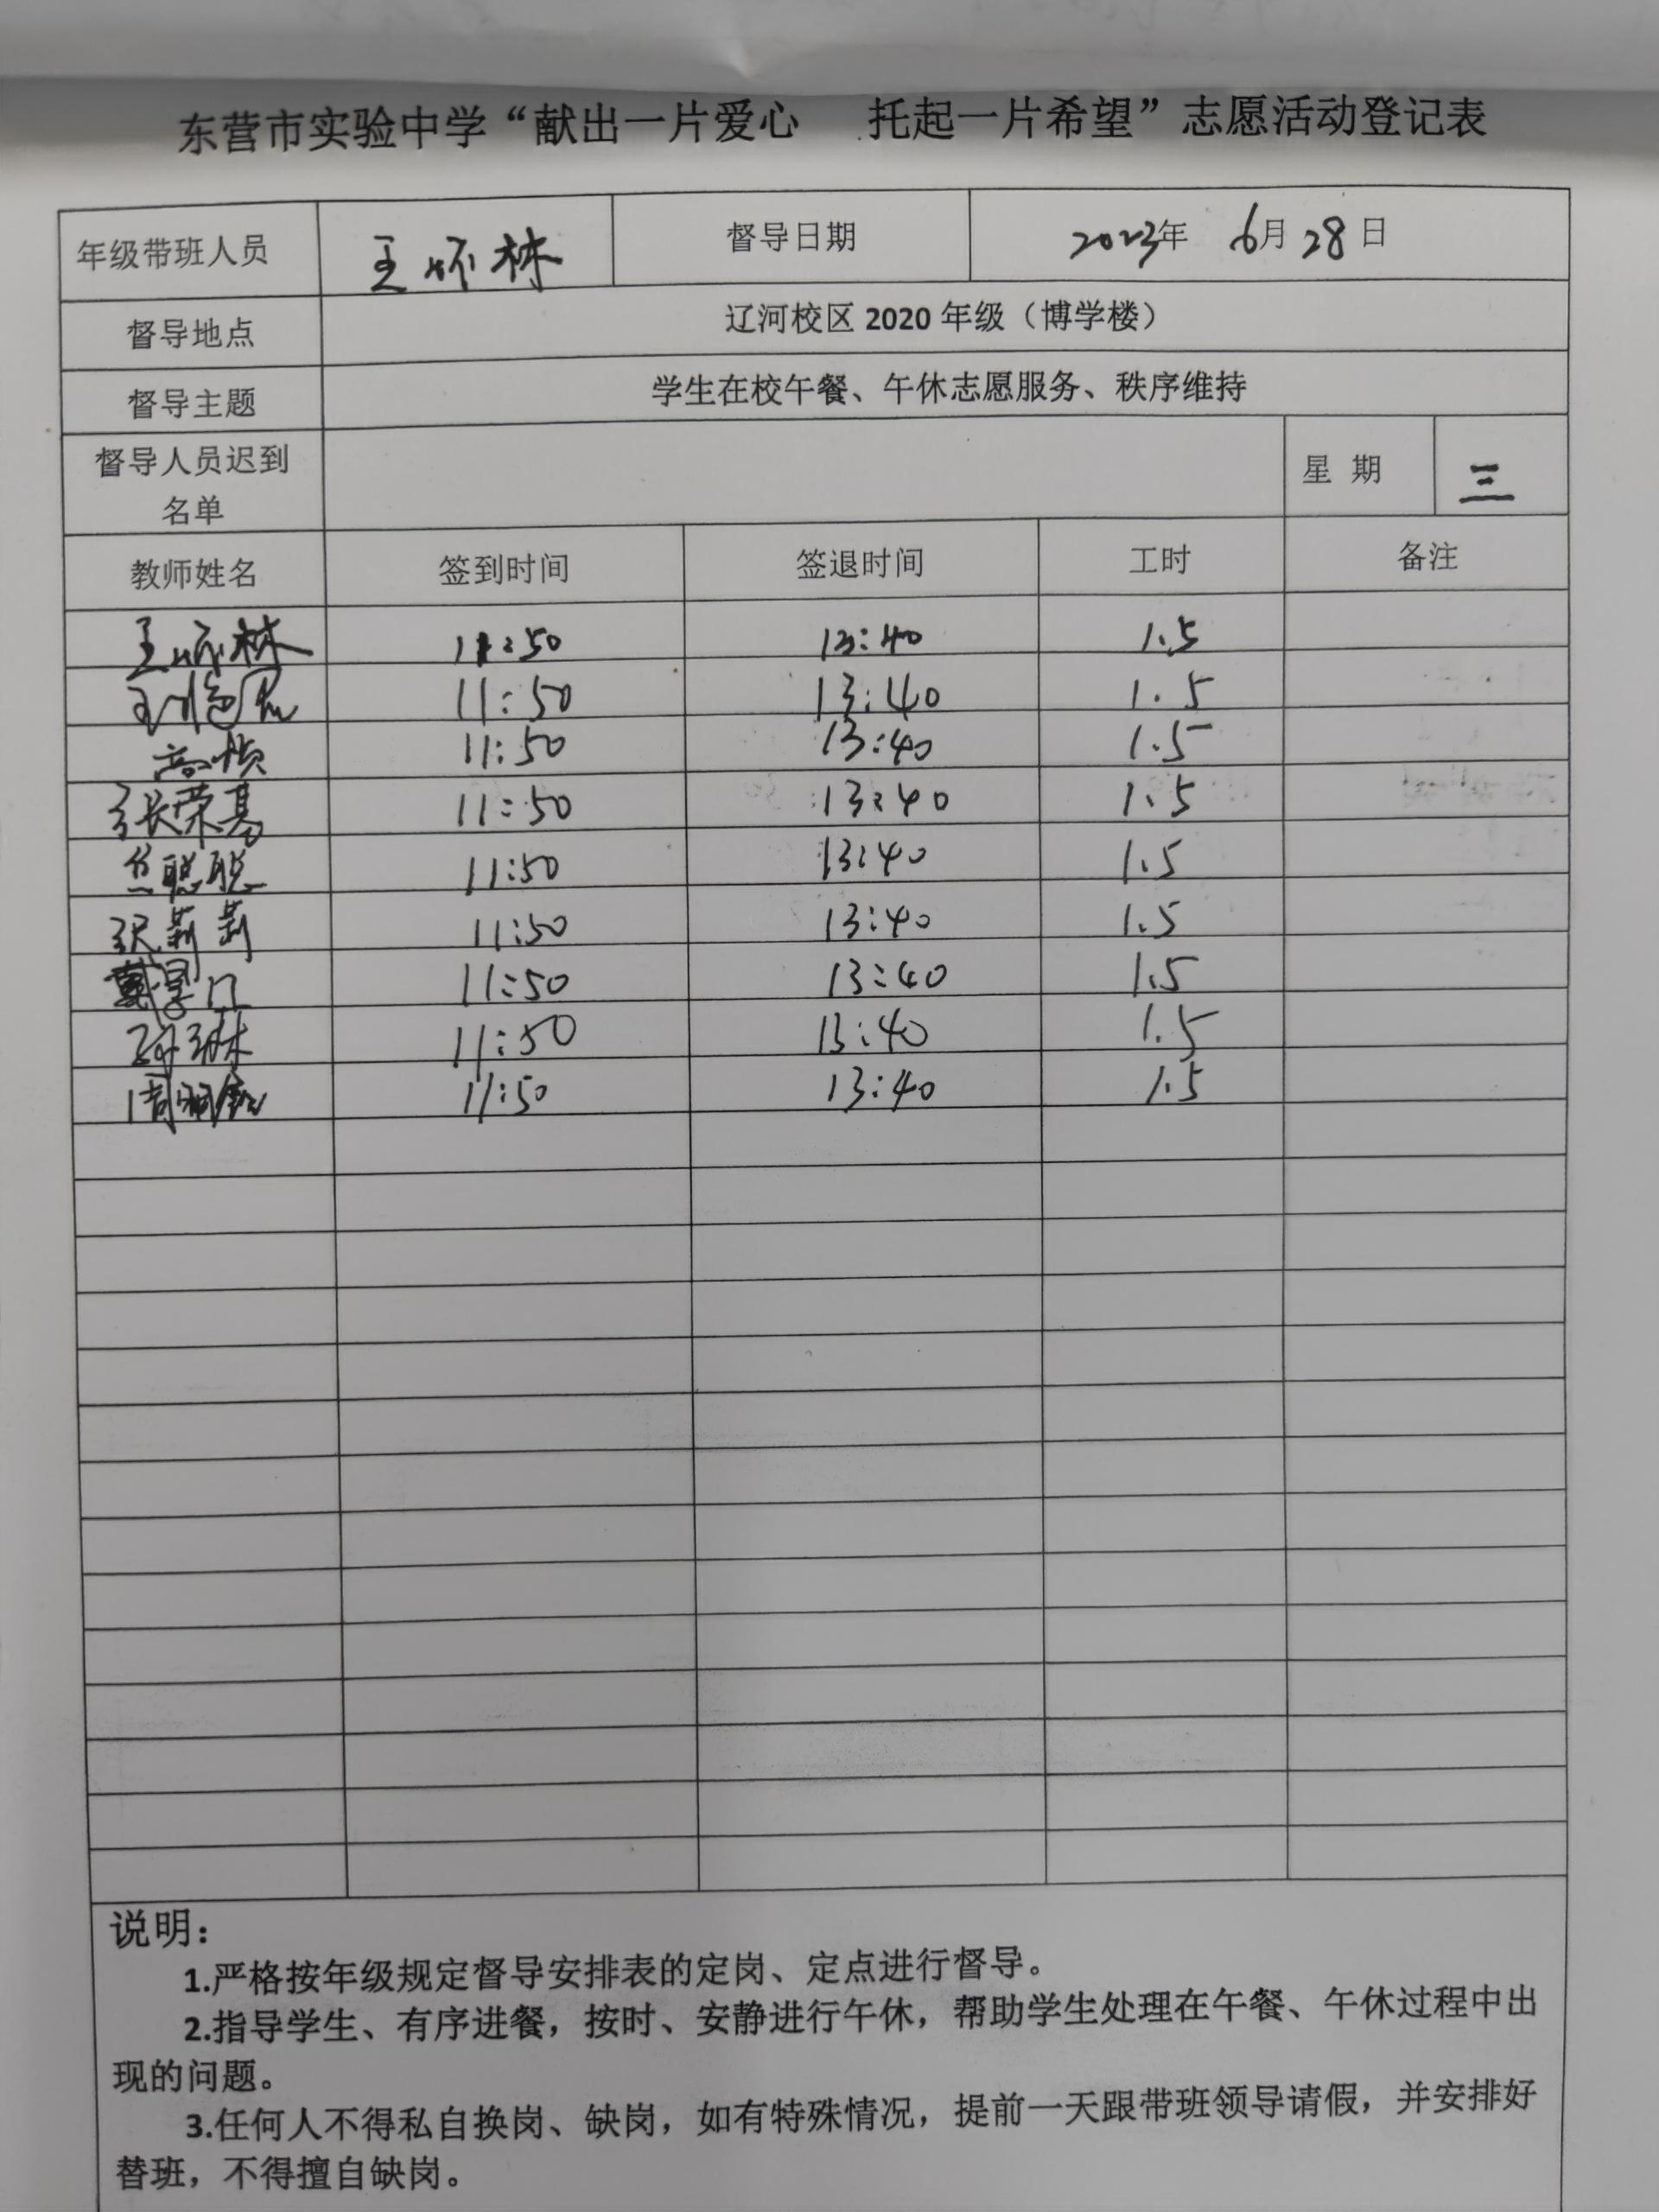 东营市实验中学“献出一片爱心 托起一片希望”志愿活动登记表
年级带班人员 王怀林 督导日期 2023年 6月28日
督导地点 辽河校区 2020 年级（博学楼）
督导主题 学生在校午餐、午休志愿服务、秩序维持
督导人员迟到
名单 星 期 三
教师姓名 签到时间 签退时间 工时 备注
王怀林 11:50 13:40 1.5
11:50 13:40 1.5
高桢 11:50 13:40 1.5
张荣基 11:50 13:40 1.5
焦聪聪 11:50 13:40 1.5
张莉莉 11:50 13:40 1.5
11:50 13:40 1.5
孙琳 11:50 13:40 1.5
11:50 13:40 1.5
说明：
1.严格按年级规定督导安排表的定岗、定点进行督导。
2.指导学生、有序进餐，按时、安静进行午休，帮助学生处理在午餐、午休过程中出
现的问题。
3.任何人不得私自换岗、缺岗，如有特殊情况，提前一天跟带班领导请假，并安排好
替班，不得擅自缺岗。